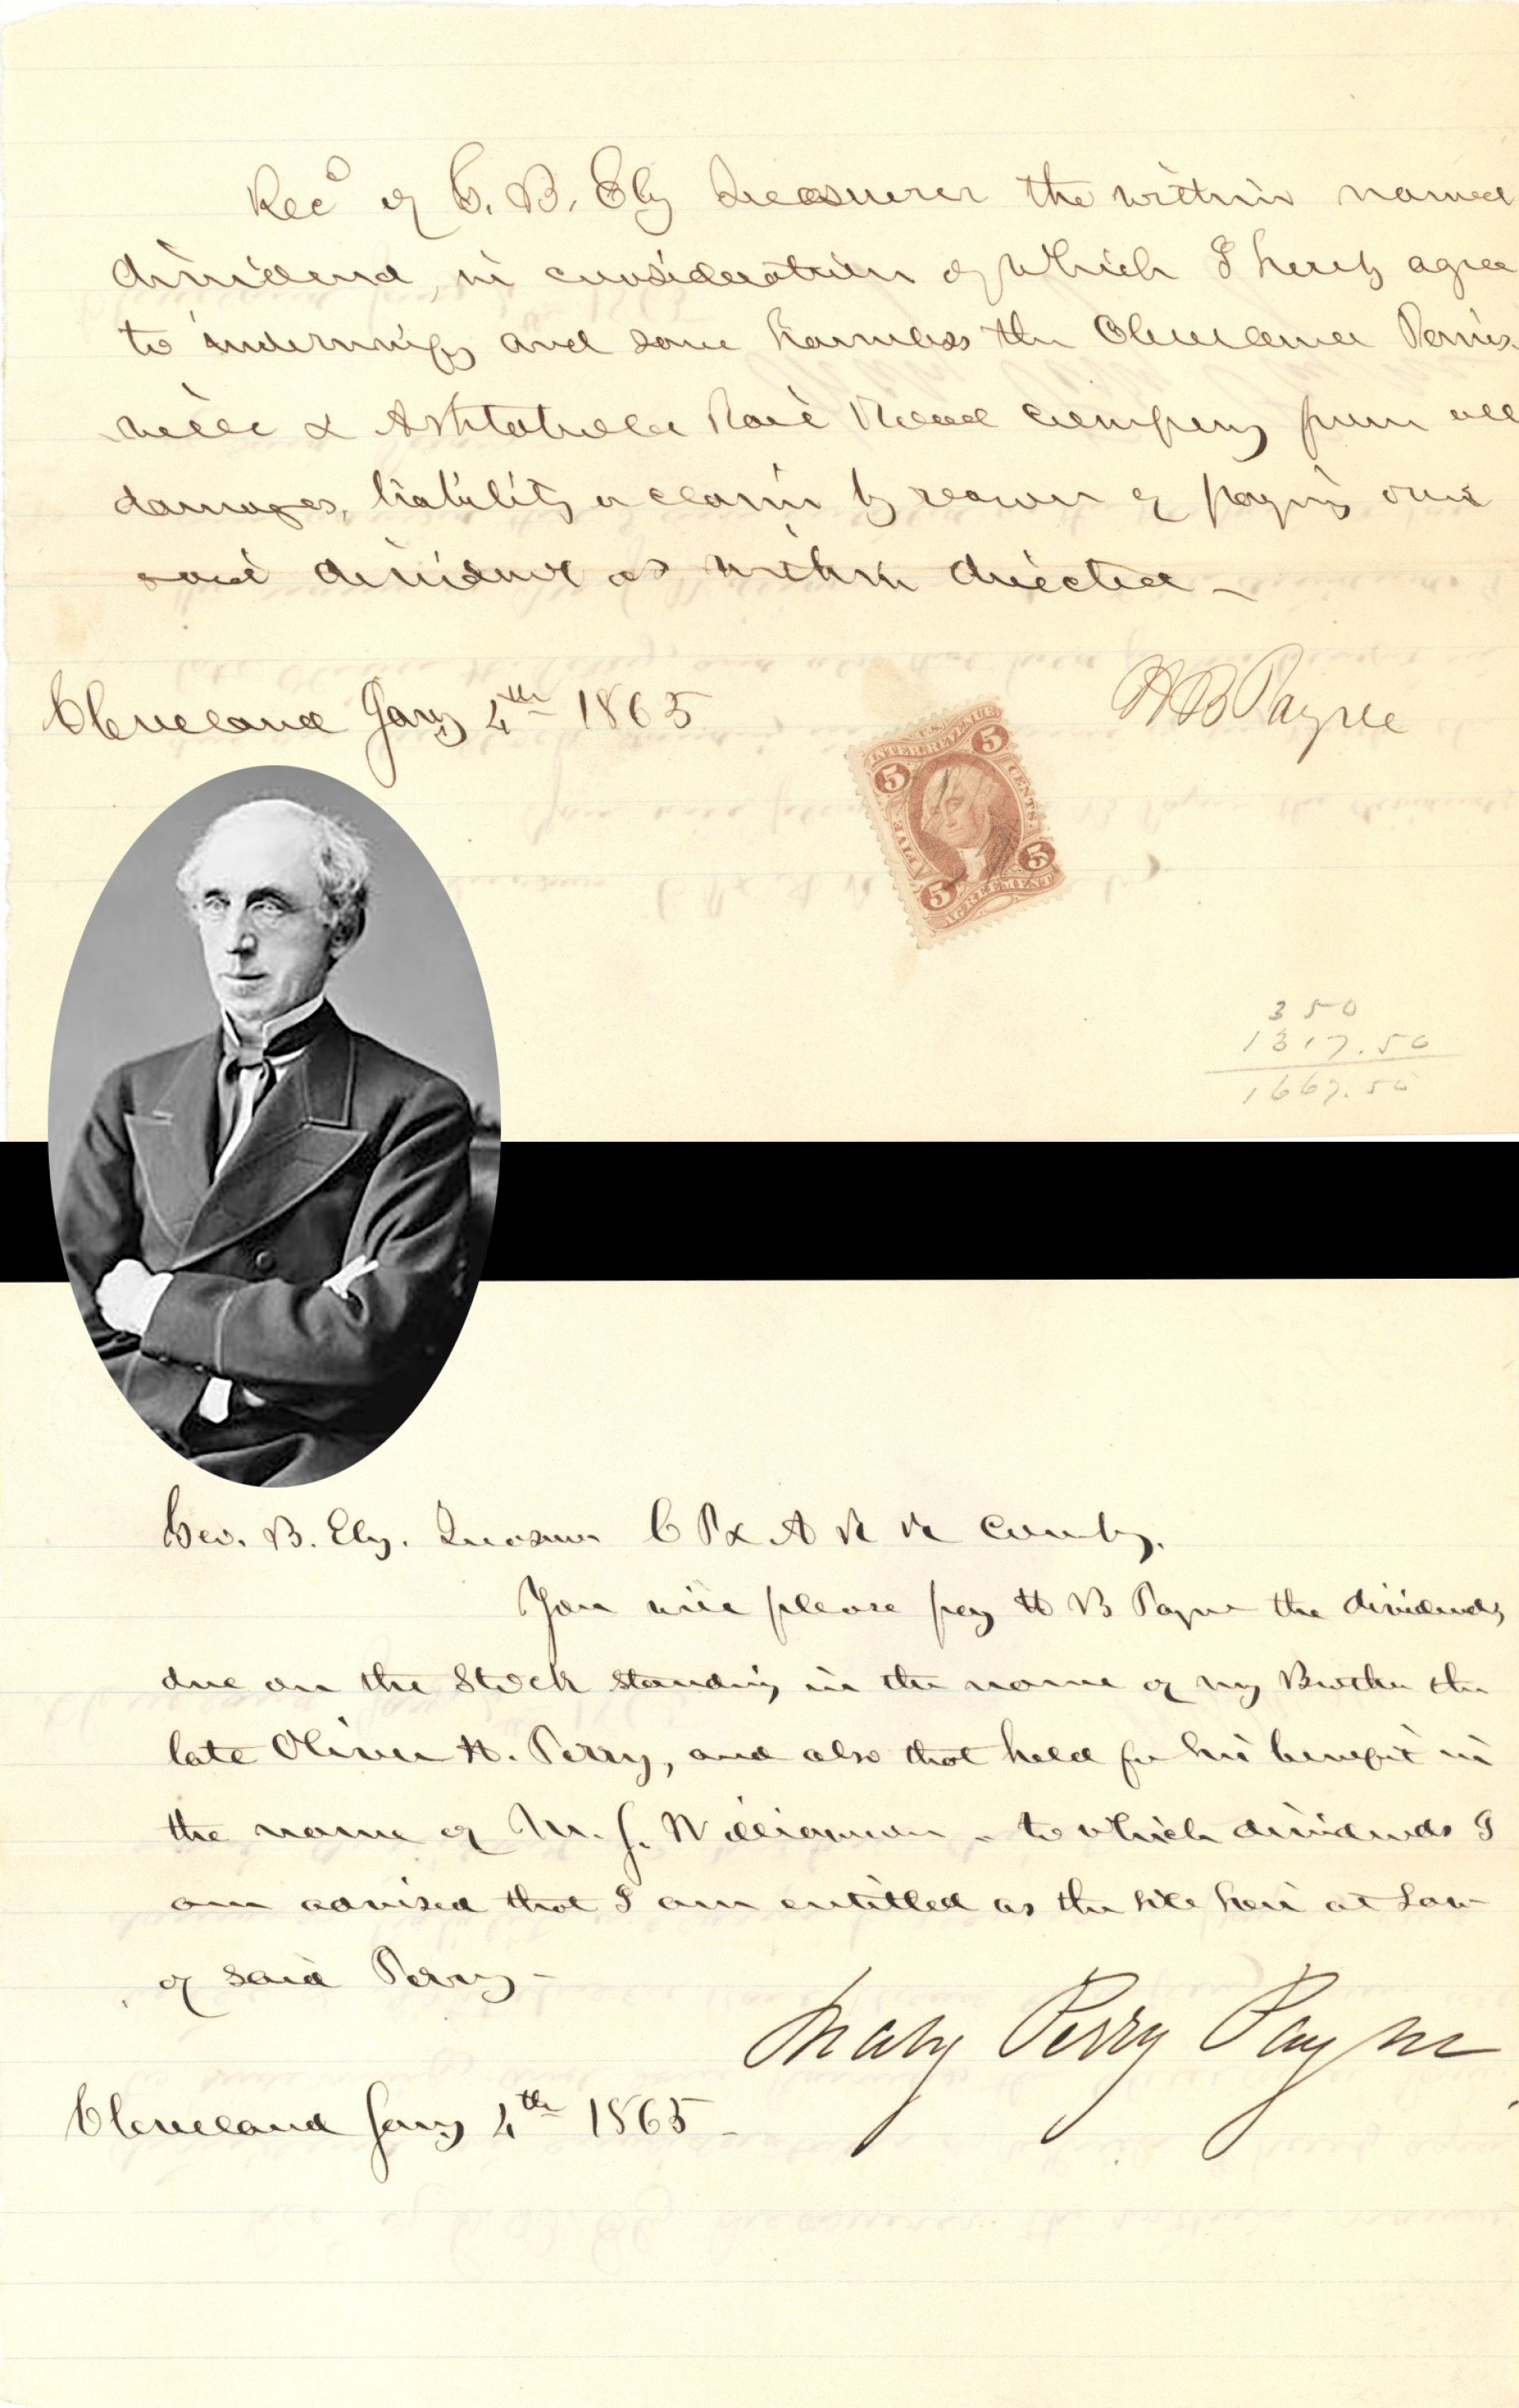 Recd of G. B. Ely Treasurer the within named
dividend, in consideration of which I hereby agree
to indemnify and save harmless the Cleveland Paines-
ville & Ashtabula Rail Road Company from all
damages, liability or claim by reason of paying over
said dividend as within directed –
Cleveland Jany 4th 1865
H B Payne
U.S.
INTER. REVENUE
5 5
FIVE CENTS
5 5
AGREEMENT
350
1317.50
1667.50
Geo. B. Ely. Treasurer C P & A R R Compy.
You will please pay H B Payne the dividends
due on the Stock standing in the name of my Brother the
late Oliver H. Perry, and also that held for his benefit in
the name of M. S. Williamson – to which dividends I
am advised that I am entitled as the sole heir at Law
of said Perry –
Mary Perry Payne
Cleveland Jany 4th 1865 –